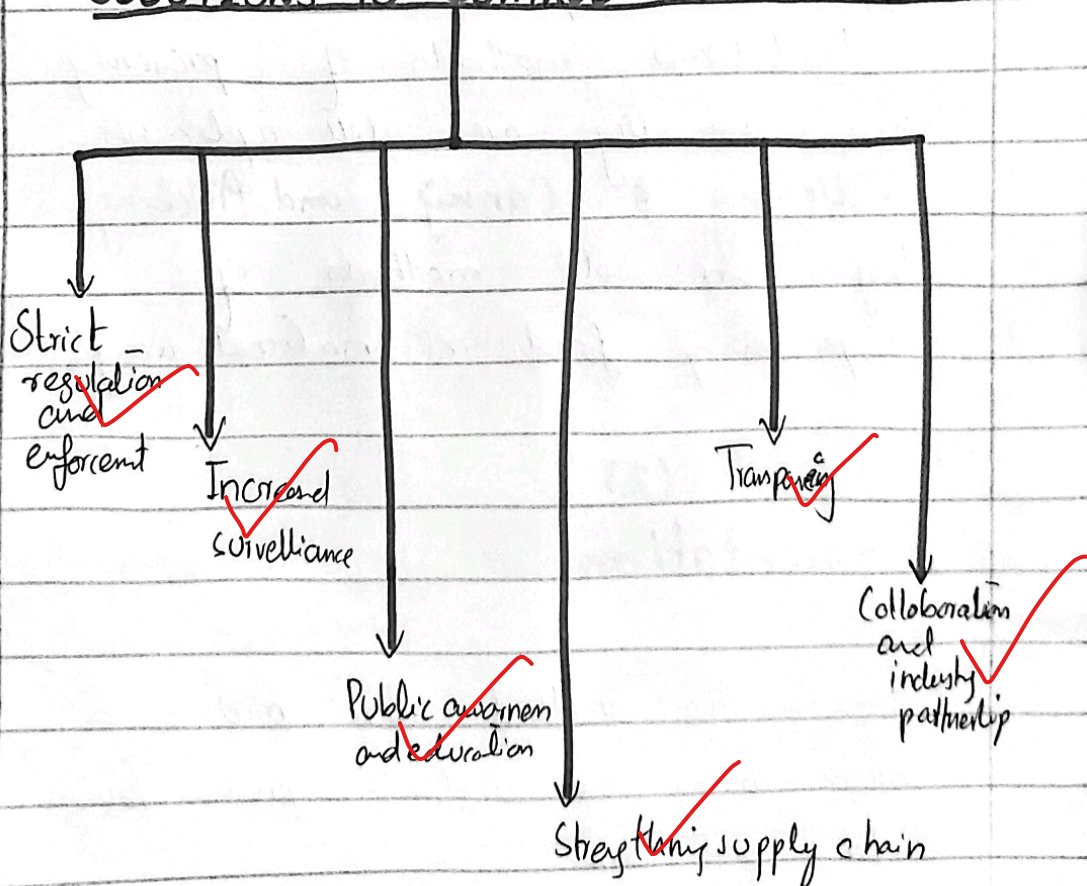 SOLUTIONS TO
Strict
regulation
and
enforcemt
Increased
suivelliance
Public awarness
and education
Stregthnig supply chain
Transparency
Colloboration
and
industry
partnership